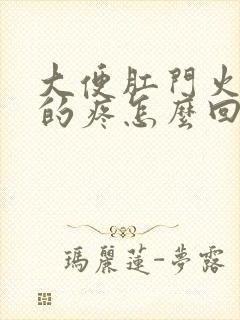 大便肛門火
的疼怎麼回
瑪麗蓮-夢露